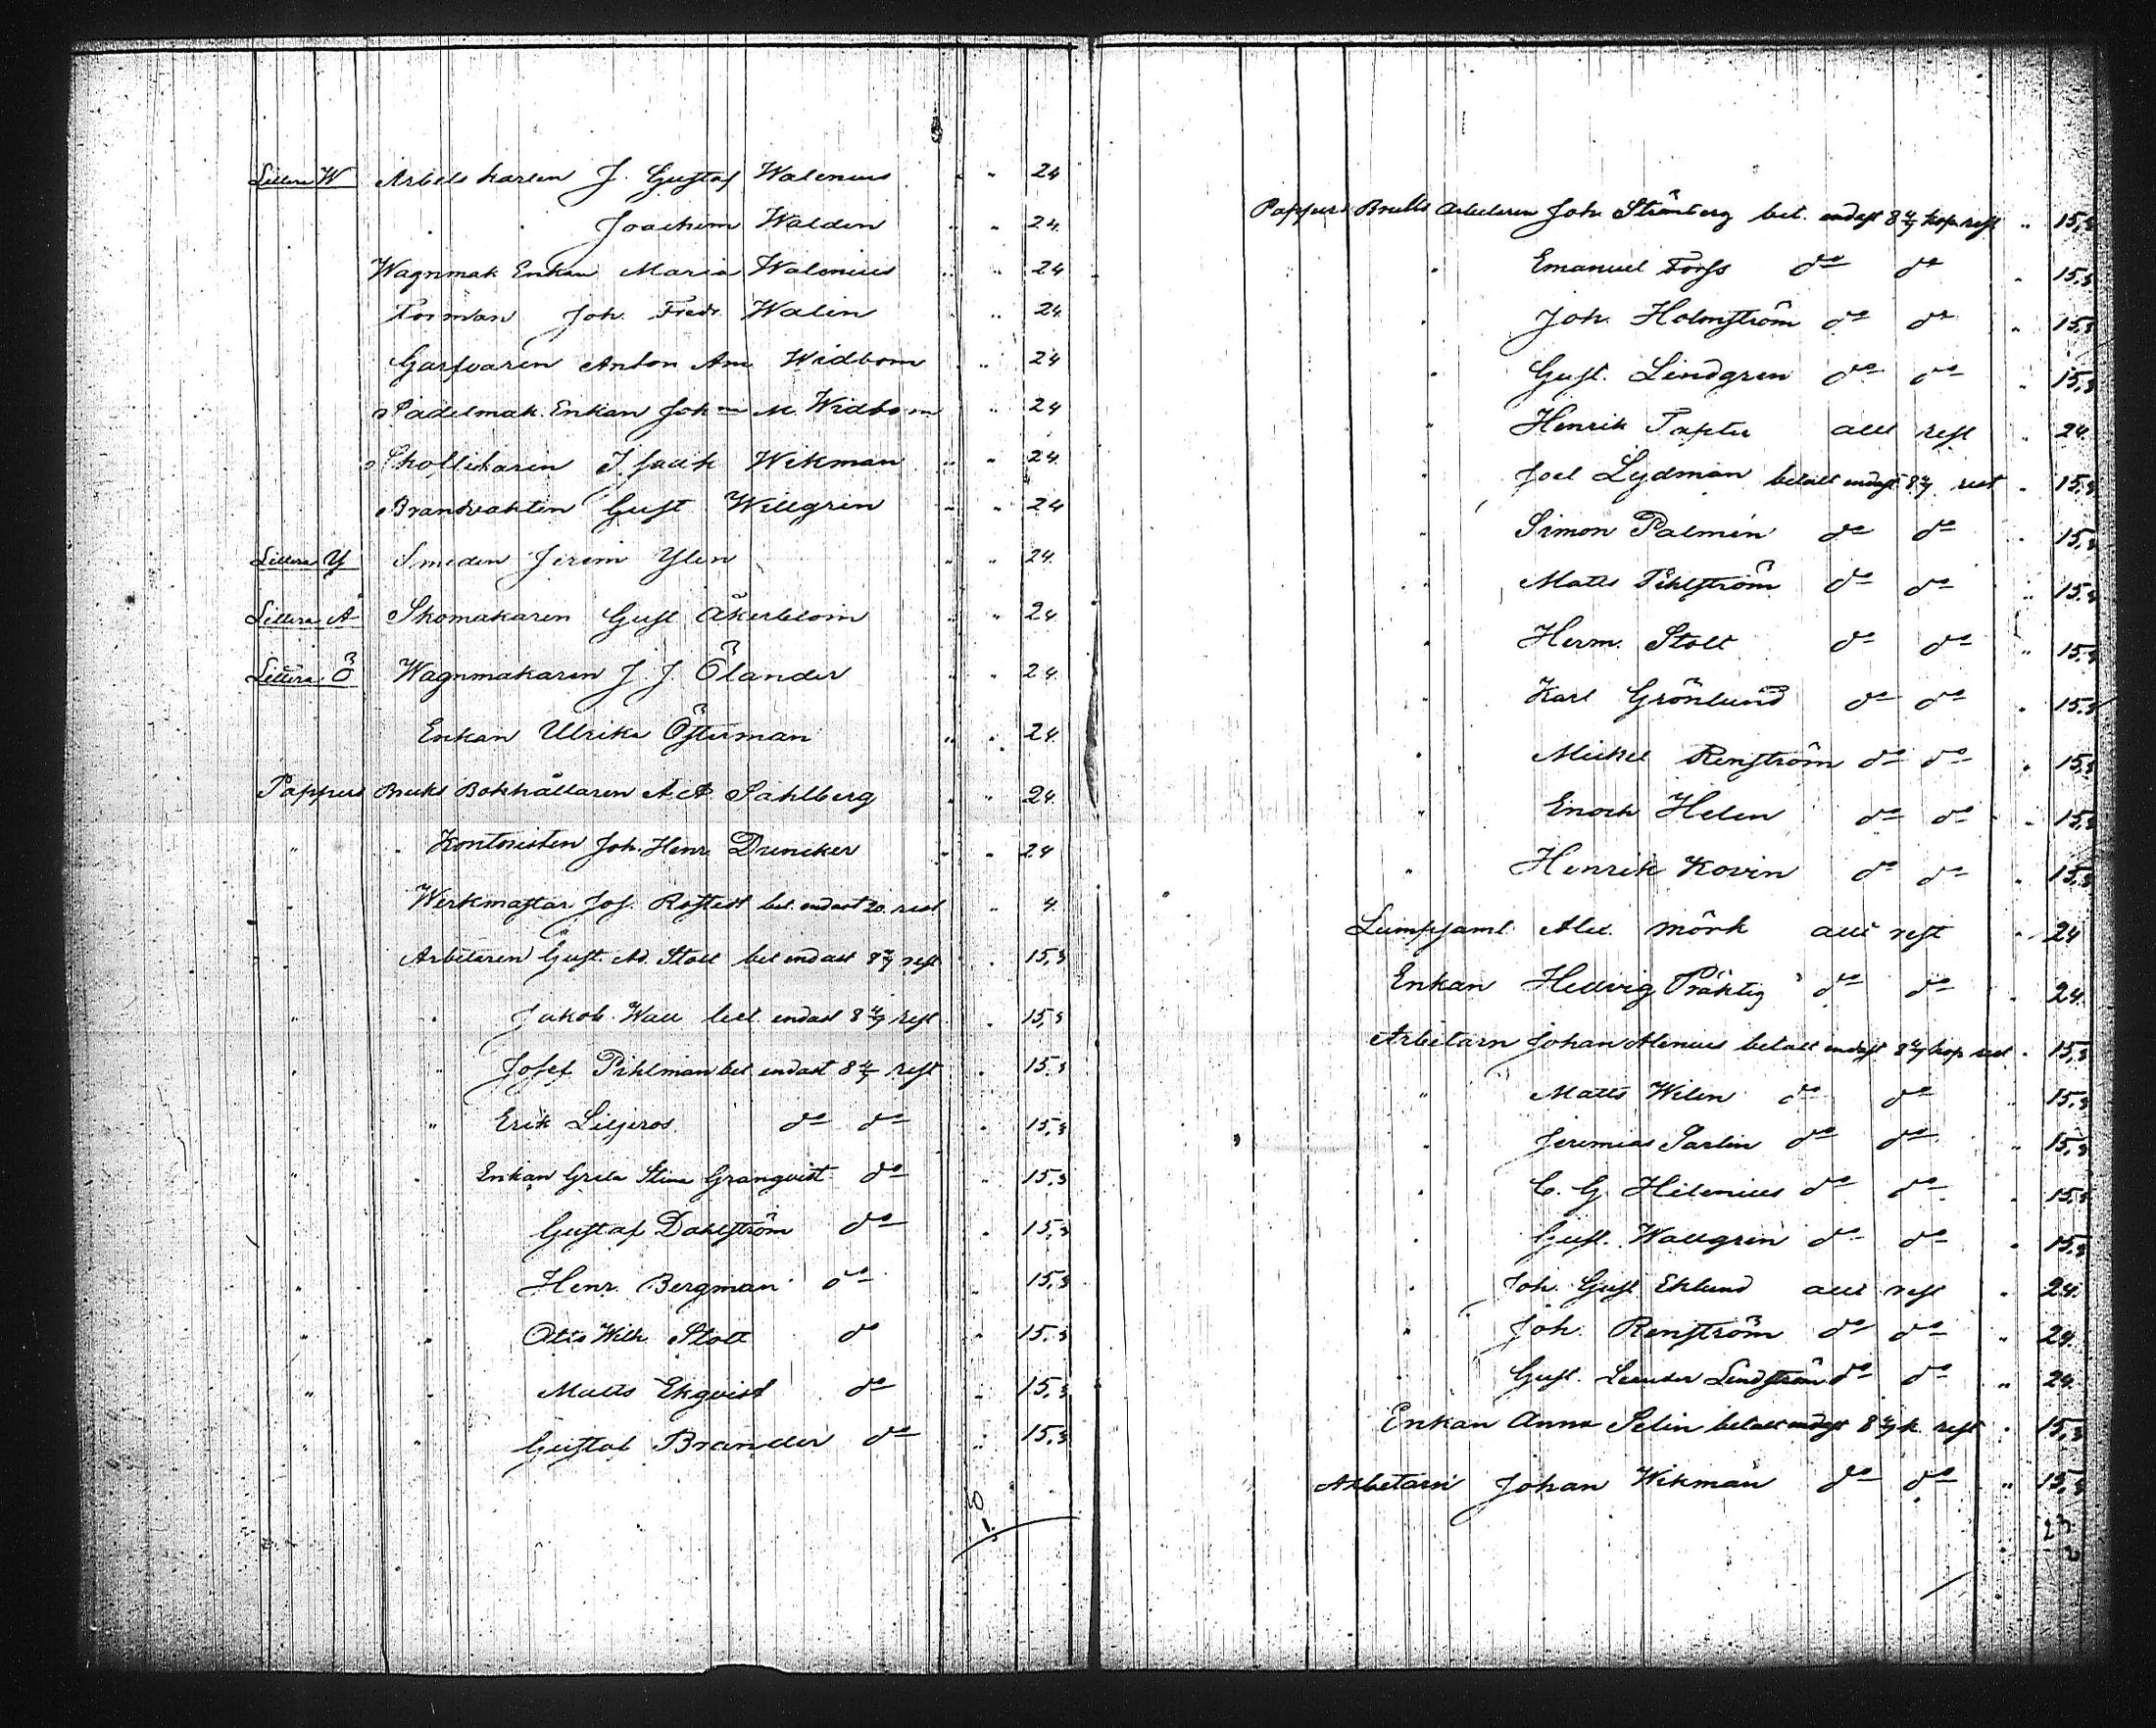 Littera W Arbets karlen J. Gustaf Walenius " " 24
" Joachim Walden " " 24.
Wagnmak Enkan Maria Walenius " " 24
Forman Joh. Fredr. Walin " 24.
Garfvaren Anton Am Widbom " 24
Sadelmak. Enkan Joh:na M. Widbom " 24
Isaak Wikman " " 24.
Brandvakten Gust Willgren " " 24
Littera Y Smeden Jerem Ylen " " 24.
Littera Å Skomakaren Gust Åkerblom " " 24
Littera Ö Wagnmakaren J. J. Ölander " " 24.
Enkan Ulrika Österman " " 24.
Pappers Bruks Bokhållaren A. A. Sahlberg " " 24.
" " Kontoristen Joh. Henr. Druncker " " 24
" Werkmästar Jos. Rostedt bet. endast 20. rest " 4.
" Arbetaren Gust. Ad. Stoll bet endast 8 4/7 rest " 15,3
" " Jakob Wall bet. endast 8 4/7 rest " 15,3
" " Josef Pihlman bet endast 8 4/7 rest " 15.3
" Erik Liljeros do do " 15,3
" " Enkan Greta Stina Granqvist do " 15,3
" Gustaf Dahlström do " 15,3
" " Henr. Bergman do " 15,3
" " Otto Wilh. Stoll do " 15.3
" " Matts Ekqvist do " 15,3
" " Gustaf Brander do " 15,3
Pappers Bruks Arbetaren Joh. Strömberg bet. endast 8 4/7 kop. rest " 15,3
" Emanuel Forss do do " 15,3
" Joh. Holmström do do " 15,3
" Gust. Lindgren do do " 15,3
" Henrik allt rest " 24.
" Joel Lydman betalt endast 8 4/7 rest " 15,3
" Simon Palmén do do " 15,3
" Matts Pihlström do do " 15.3
" Herm. Stoll do do " 15.3
" Karl Grönlund do do " 15.3
" Mickel Renström do do " 15,3
" Enoch Helen do do " 15,3
" Henrik Kovin do do " 15,3
Lumpsaml. Alex. Mörk allt rest " 24
Enkan Hedvig Präktig do do " 24.
Arbetarn Johan Alenius betalt endast 8 4/7 kop rest " 15,3
" Matts Wilen do do " 15,3
" Jeremias Sarlin do do " 15,3
" C. G. Helenius do do " 15,3
" Gust. Wallgren do do " 15,3
" Joh. Gust Eklund allt rest " 24.
" Joh. Renström do do " 24.
" Gust. Lindström do do " 24.
Enkan Anna Selin betalt endast 8 4/7 k. rest " 15,3
Arbetarn Johan Wikman do do " 15,3